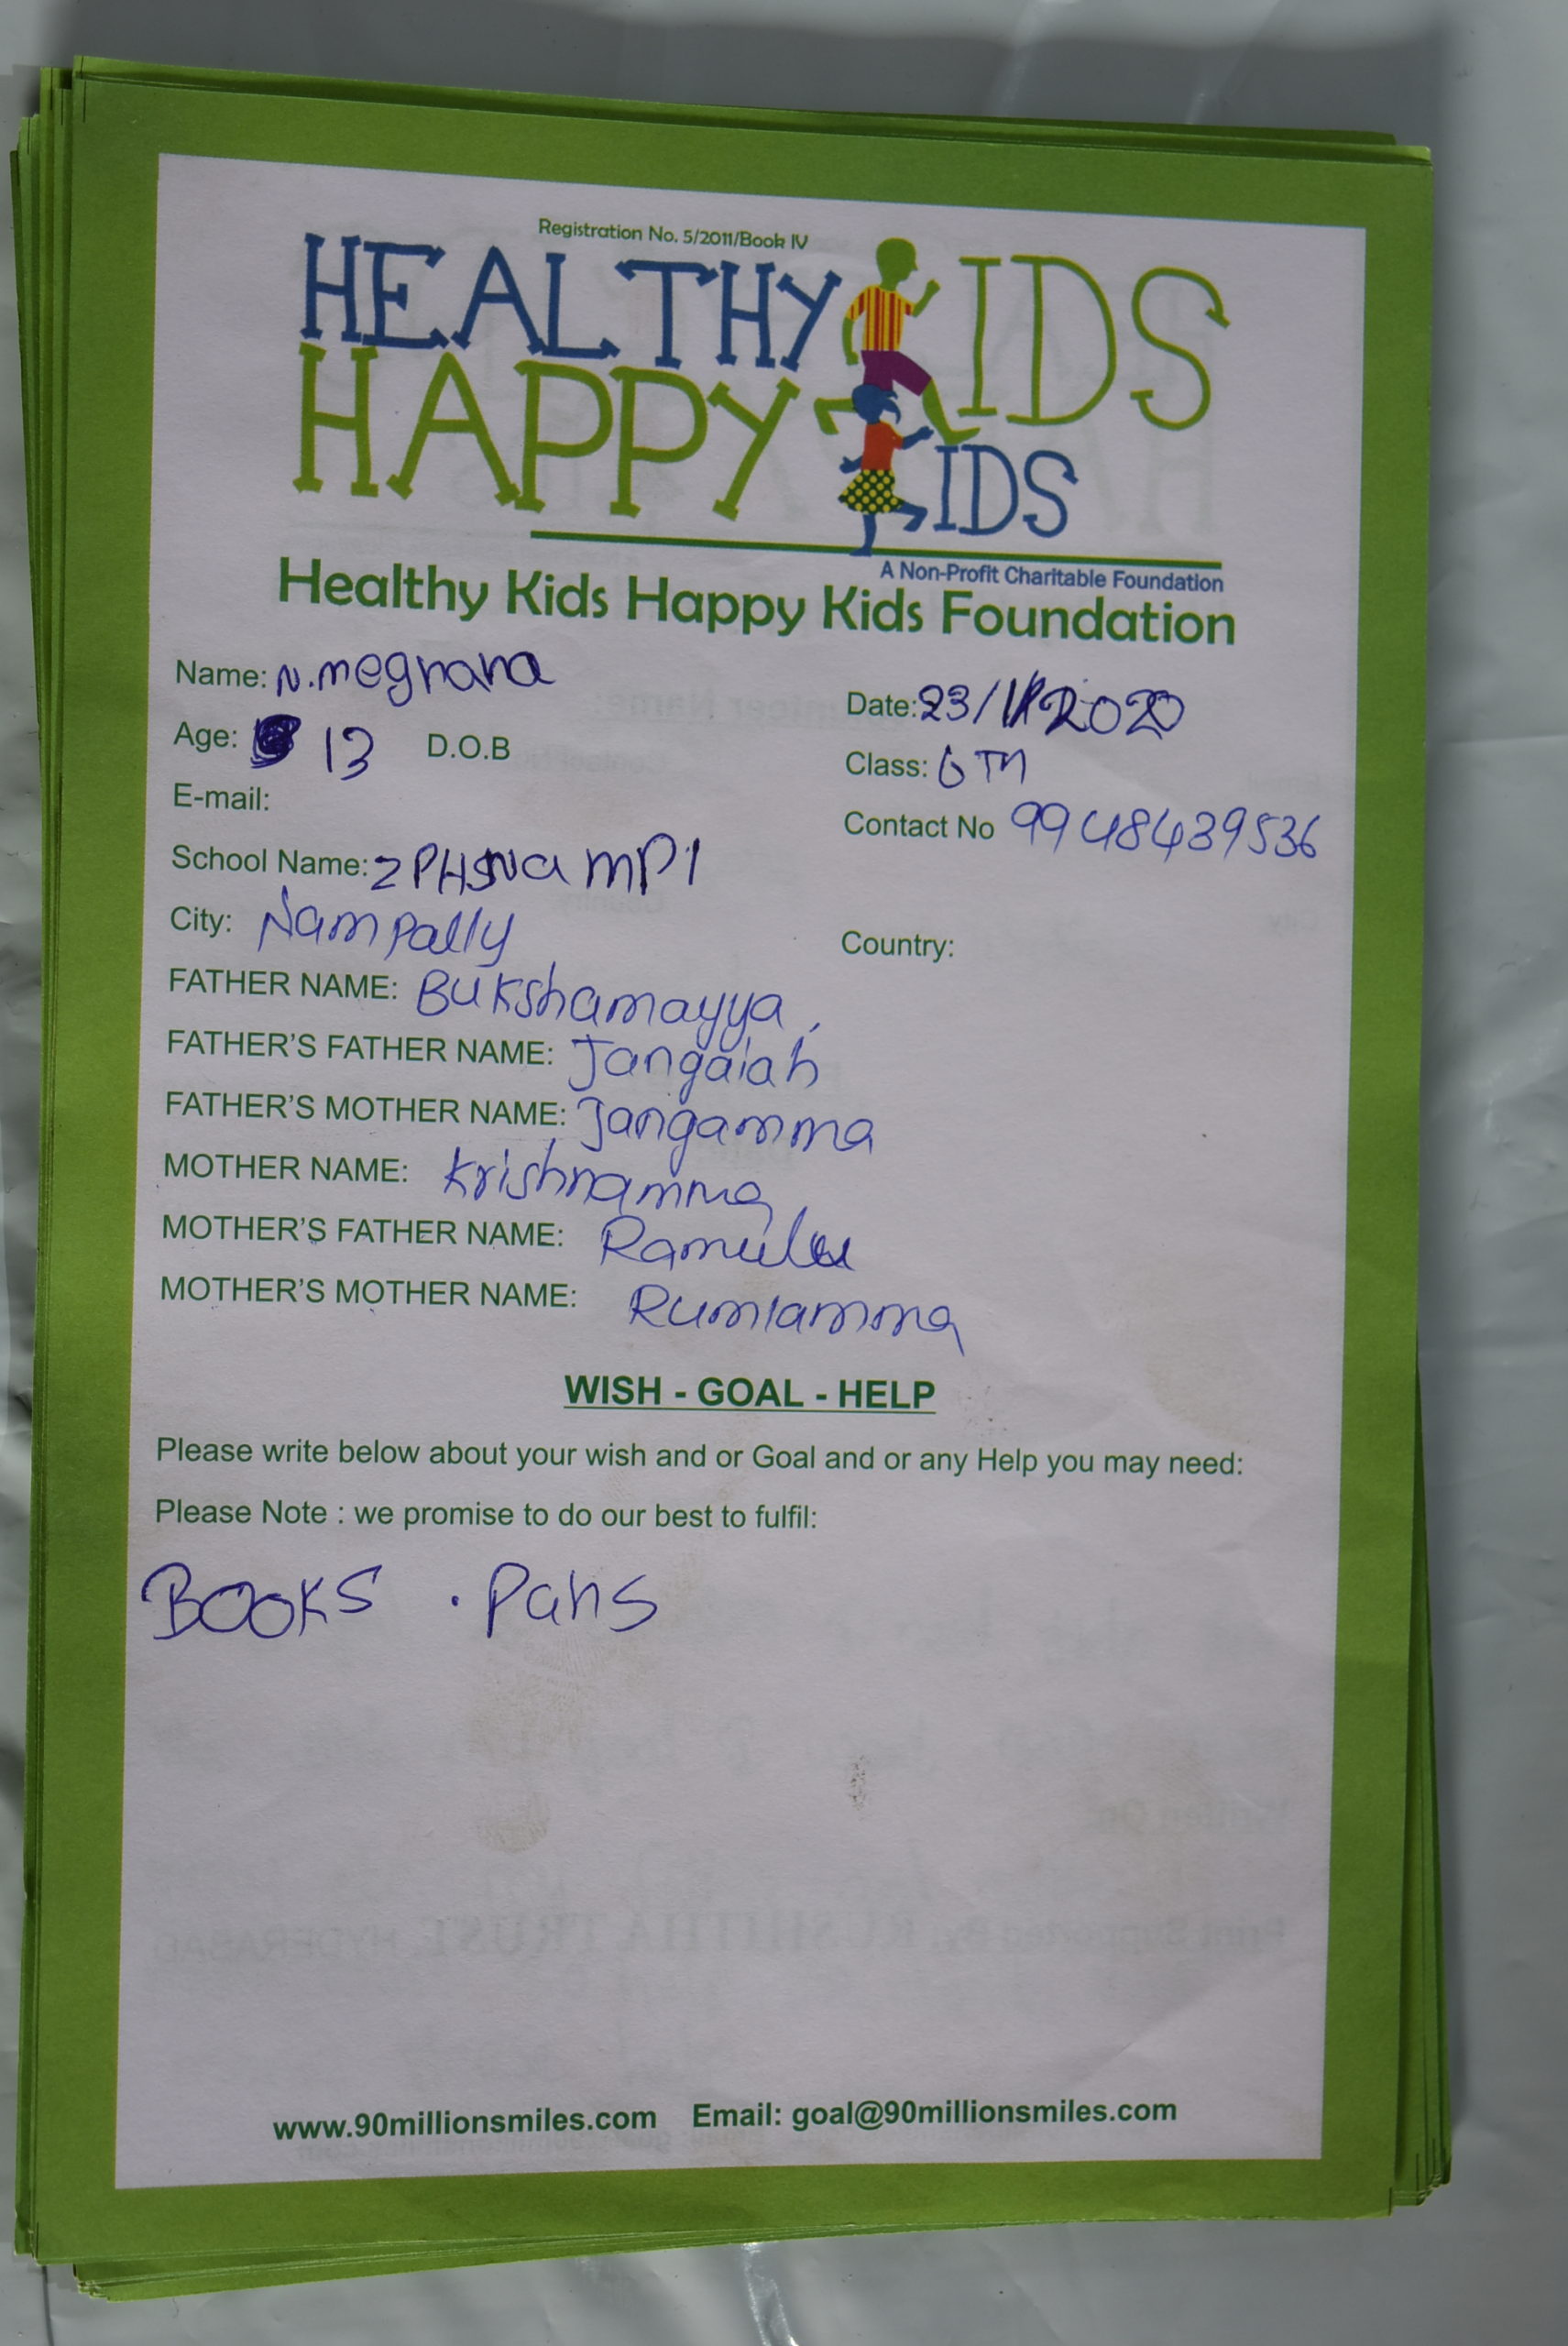 Registration No. 5/2011/Book IV
HEALTHY KIDS
HAPPY KIDS
A Non-Profit Charitable Foundation
Healthy Kids Happy Kids Foundation
Name: N.megnana
Date: 23/11/2020
Age: 13 D.O.B
Class: 6Th
E-mail:
Contact No 9948439536
School Name: ZPHSNamPl
City: Nampally
Country:
FATHER NAME: Bukshamayya
FATHER'S FATHER NAME: Jangaiah
FATHER'S MOTHER NAME: Jangamma
MOTHER NAME: Krishnamma
MOTHER'S FATHER NAME: Ramulu
MOTHER'S MOTHER NAME:
WISH - GOAL - HELP
Please write below about your wish and or Goal and or any Help you may need:
Please Note : we promise to do our best to fulfil:
BOOKS . Pans
www.90millionsmiles.com Email: goal@90millionsmiles.com